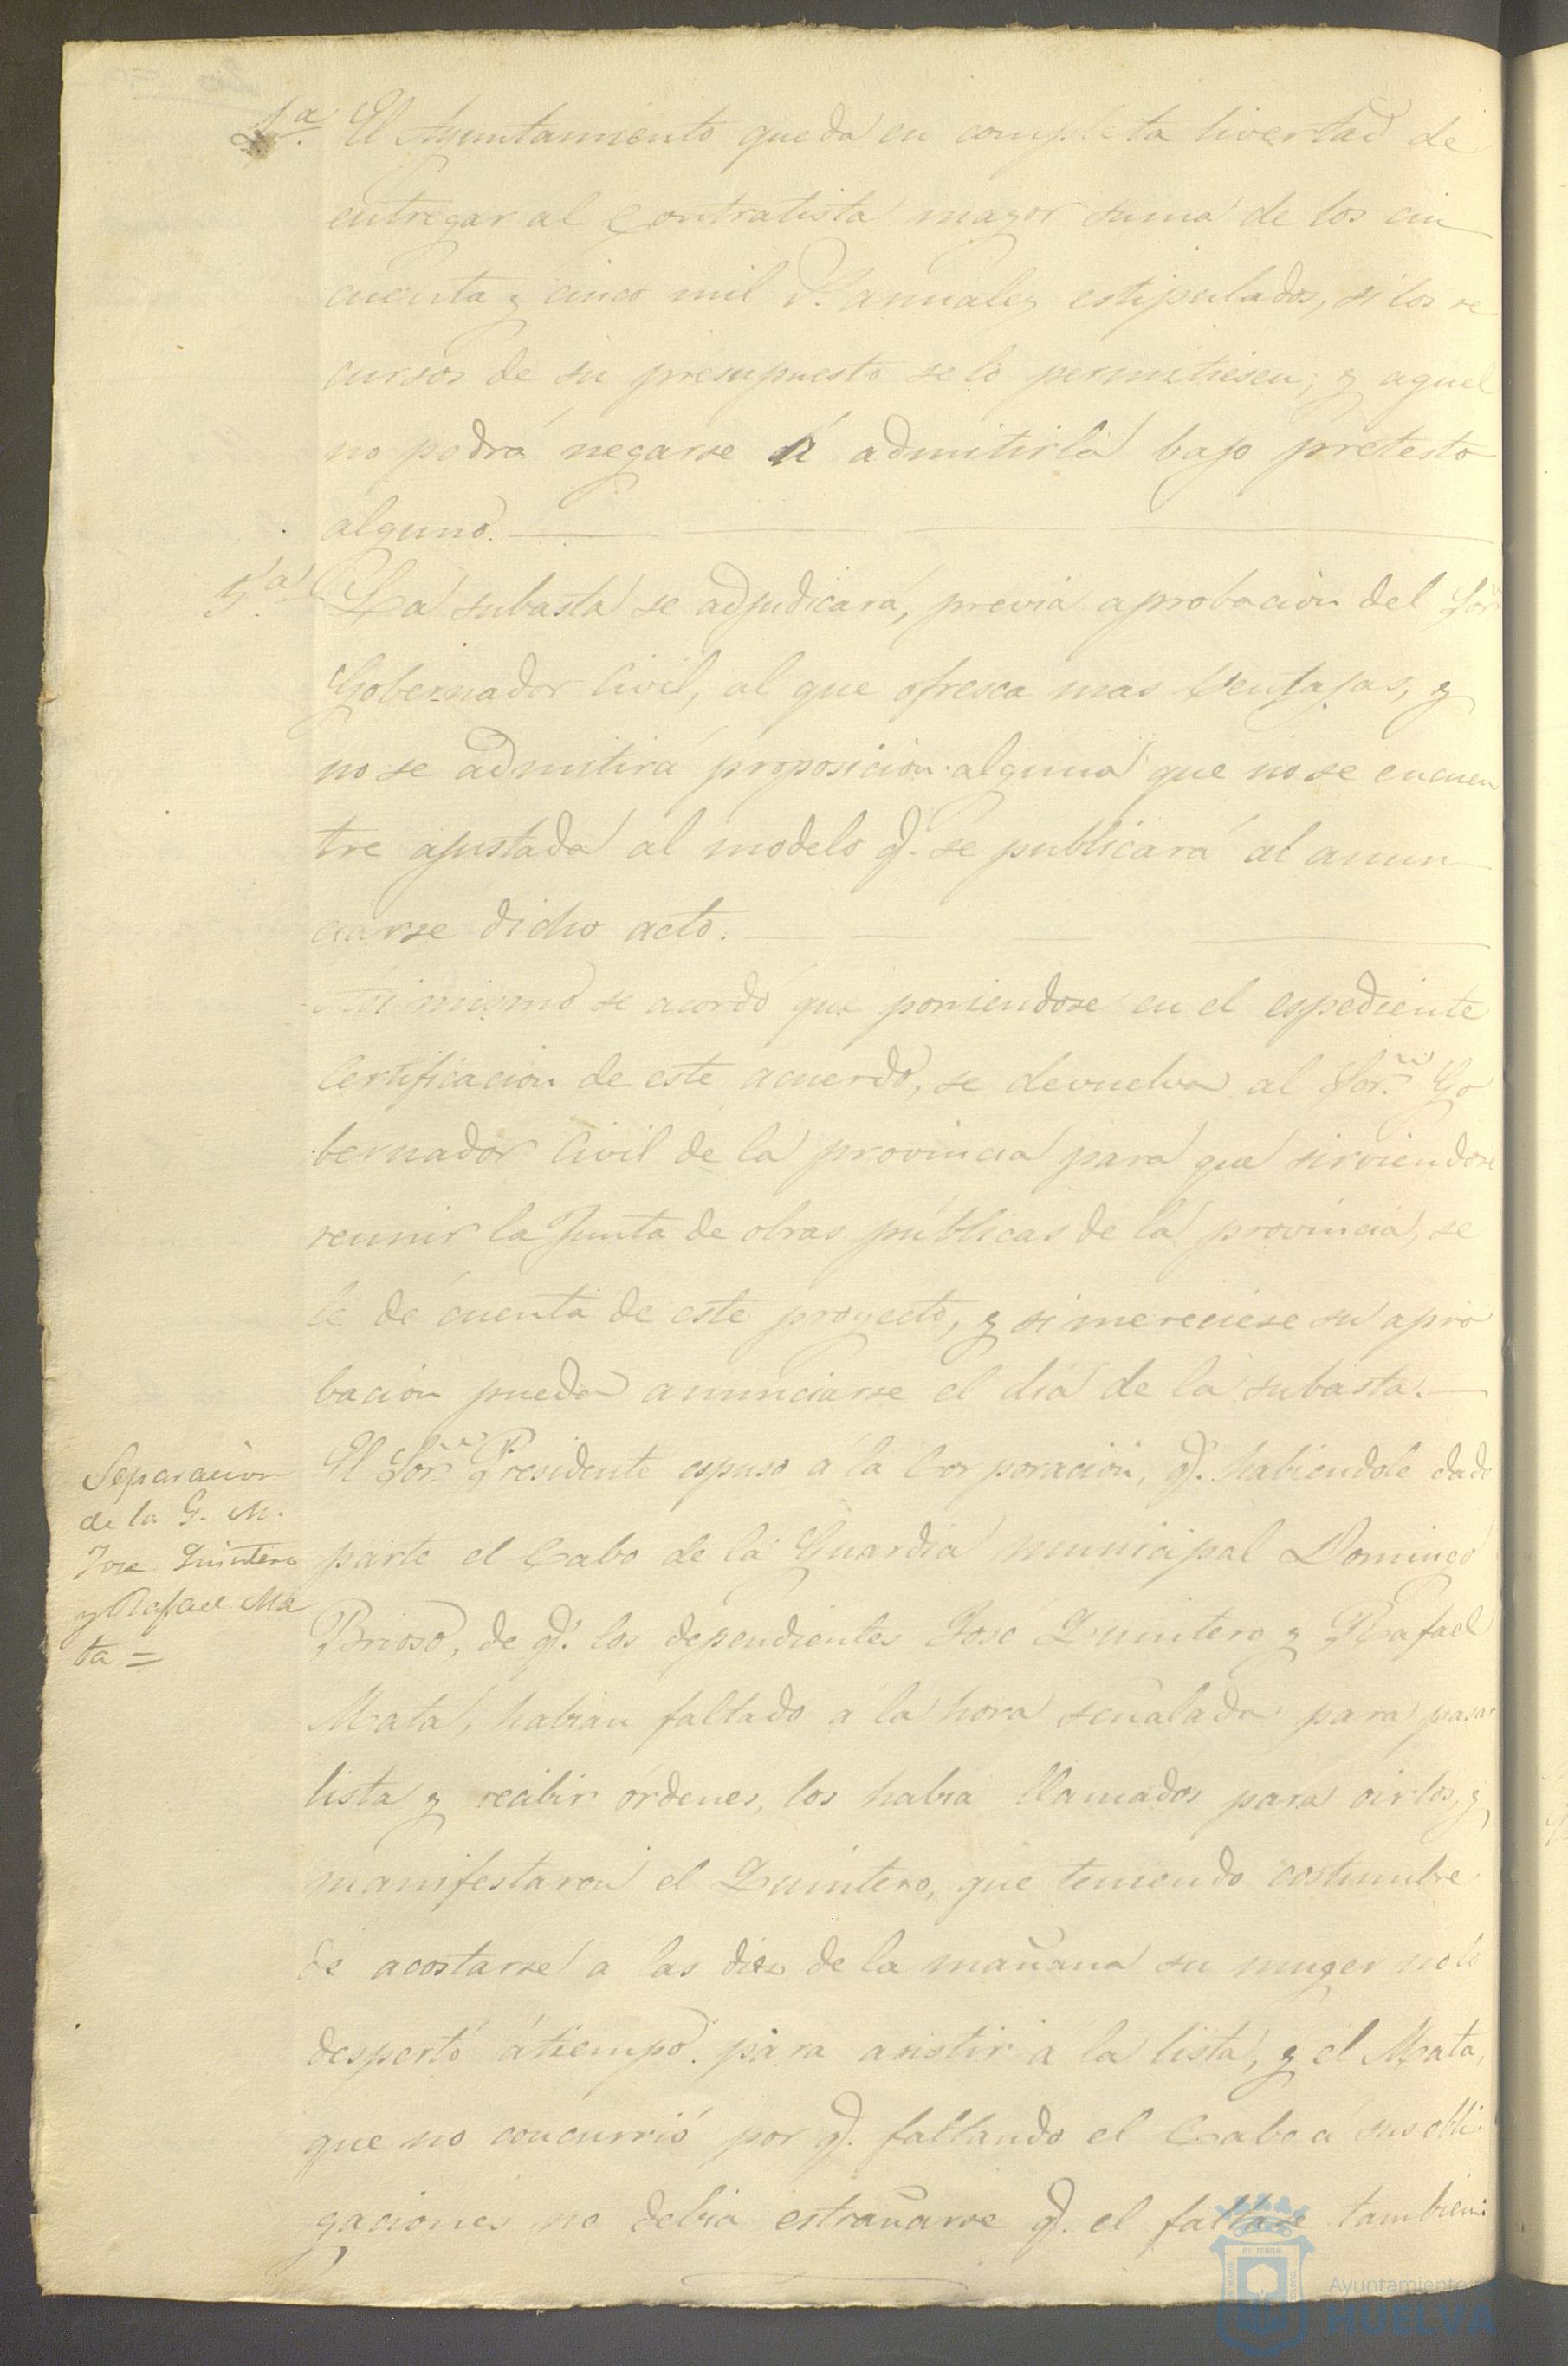 4ª. El Ayuntamiento queda en completa livertad de
entregar al Contratista mayor suma de los cin
cuenta y cinco mil r.ˢ anuales estipulados, si los re
cursos de su presupuesto se lo permitiesen; y aquel
no podrá negarse á admitirla bajo pretesto
alguno.
5ª. La subasta se adjudicará, previa aprobacion del Sor.
Gobernador Civil, al que ofresca mas ventajas, y
no se admitirá proposicion alguna que no se encuen
tre ajustada al modelo q.ᵉ se publicará al anun
ciarse dicho acto.
Asi mismo se acordó que poniendose en el espediente
Certificacion de este acuerdo, se devuelva al Sor. Go
bernador Civil de la provincia para que sirviendose
reunir la Junta de obras públicas de la provincia, se
le dé cuenta de este proyecto, y si mereciese su apro
bacion pueda anunciarse el dia de la subasta.
Separacion
de la G. M.
Jose Quintero
y Rafael Ma
ta =
El Sor. Presidente espuso á la Corporacion, q.ᵉ habiendole dado
parte el Cabo de la Guardia municipal Domingo
Brioso, de q.ᵉ los dependientes José Quintero y Rafael
Mata, habian faltado á la hora señalada para pasar
lista y recibir órdenes, los habia llamados para oirlos, y
manifestaron el Quintero, que teniendo costumbre
de acostarse á las diez de la mañana su muger no lo
despertó á tiempo para asistir á la lista, y el Mata,
que no concurrió por q.ᵉ faltando el Cabo á sus obli
gaciones no debia estrañarse q.ᵉ el faltase tambien:
Ayuntamiento
HUELVA